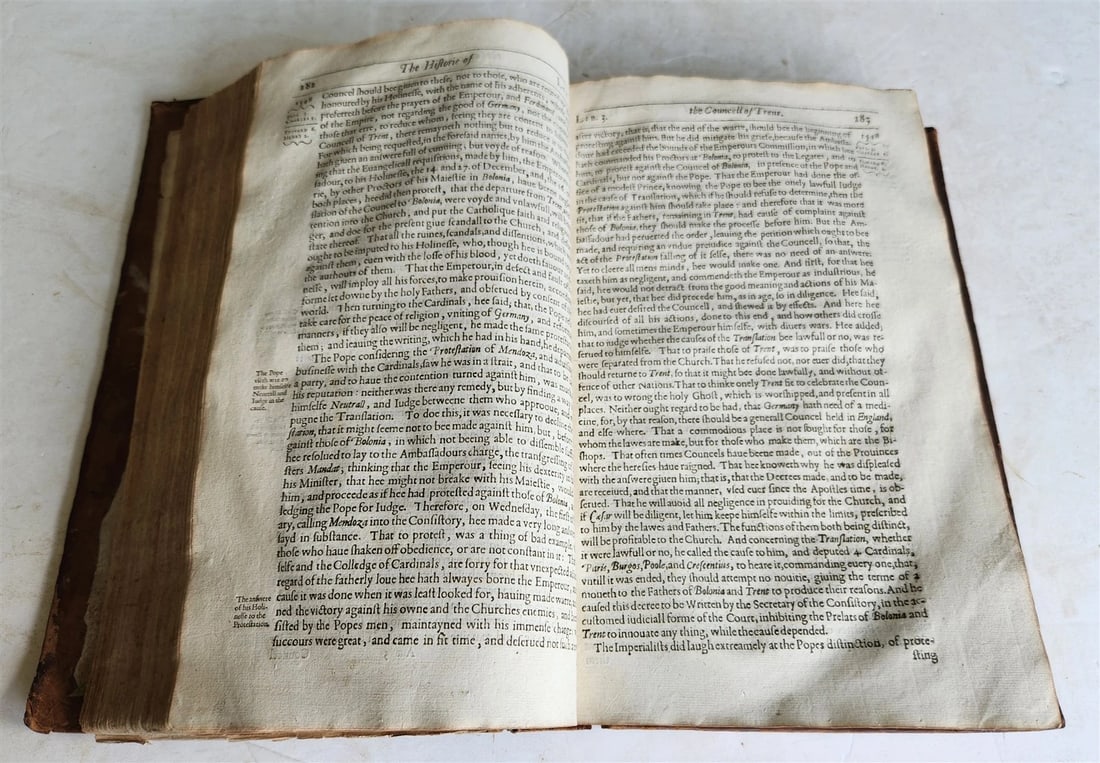 The Historie of
282
1548
Councel should bee giuen to these, not to those, who are
honoured by his Holinesse, with the name of his adherents,
preferreth before the prayers of the Emperour, and
of the Empire, not regarding the good of Germany, nor the
those that erre, to reduce whom, seeing they are content
Councel of Trent, there remayneth nothing but to reduce
For which being requested, in the foresaid names, by him the
hath giuen an answere full of cunning, but voyde of reason.
ing that the Euangelicall requisitions, made by him, the Em-
sadour, to his Holinesse, the 14. and 27. of December, and the
rie, by other Proctors of his Maiestie in Bolonia, haue been
both places, hee did then protest, that the departure from Trent
slation of the Councel to Bolonia, were voyde and vnlawfull,
tention into the Church, and put the Catholique faith and
ger, and doe for the present giue scandall to the Church, and
state thereof. That all the ruines, scandals, and dissentions, which
ought to be imputed to his Holinesse, who, though hee is bound
against them, euen with the losse of his blood, yet doeth
the authours of them. That the Emperour, in defect and
nesse, will imploy all his forces, to make prouision herein, according
forme let downe by the holy Fathers, and obserued by consent of
world. Then turning to the Cardinals, hee said, that, the Pope
take care for the peace of religion, vniting of Germany, and
manners, if they also will be negligent, he made the same protest
them; and leauing the writing, which he had in his hand, he
The Pope considering the Protestation of Mendoza, and
businesse with the Cardinals, saw he was in a strait, and that to be
a party, and to haue the contention turned against him, was
his reputation: neither was there any remedy, but by finding a way
himselfe Neutrall, and Iudge betweene them who approoue, and
pugne the Translation. To doe this, it was necessary to decline
station, that it might seeme not to bee made against him, but, before
gainst those of Bolonia, in which not beeing able to dissemble
hee resolued to lay to the Ambassadours charge, the transgressing of
sters Mandat; thinking that the Emperour, seeing his dexterity
his Minister, that hee might not break with his Maiestie, would
him, and proceede as if hee had protested against those of Bolonia,
ledging the Pope for Iudge. Therefore, on Wednesday, the first
ary, calling Mendoza into the Consistory, hee made a very long
sayd in substance. That to protest, was a thing of bad example,
those who haue shaken off obedience, or are not constant in it:
selfe and the Colledge of Cardinals, are sorry for that vnexpected
regard of the fatherly loue hee hath alwayes borne the Emperour,
cause it was done when it was least looked for, hauing made warre
ned the victory against his owne and the Churches enemies, and
sisted by the Popes men, maintayned with his immense charge:
succours were great, and came in fit time, and deserued not
The Pope
make himselfe
Neutrall and
Iudge in the
cause.
The answere
of his Holi-
nesse to the
Protestation.
Lib. 3.
the Councell of Trent.
283
1548
after victory, that is, that the end of the warre, should bee the beginning of
protesting against him. But he did mitigate his griefe, because the Ambassa-
dour had exceeded the bounds of the Emperours Commission, in which hee
hath commanded his Proctors at Bolonia, to protest to the Legates, and to
him, to protest against the Councel of Bolonia, in presence of the Pope and
Cardinals, but not against the Pope. That the Emperour had done the of-
fice of a modest Prince, knowing the Pope to bee the onely lawfull Iudge
in the cause of Translation, which if he should refuse to determine, then the
Protestation against him should take place: and therefore that it was more
fit, that if the Fathers, remaining in Trent, had cause of complaint against
those of Bolonia, they should make the processe before him. But the Am-
bassadour had peruerted the order, leauing the petition which ought to be
made, and requiring an vndue preiudice against the Councell, so that, the
act of the Protestation falling of it selfe, there was no need of an answere.
Yet to cleere all mens minds, hee would make one. And first, for that hee
taxeth him as negligent, and commendeth the Emperour as industrious, he
said, hee would not detract from the good meaning and actions of his Ma-
iestie, but yet, that hee did precede him, as in age, so in diligence. Hee said,
hee had euer desired the Councell, and shewed it by effects. And here hee
discoursed of all his actions, done to this end, and how others did crosse
him, and sometimes the Emperour himselfe, with diuers wars. Hee added,
that to iudge whether the causes of the Translation bee lawfull or no, was re-
serued to himselfe. That to praise those of Trent, was to praise those who
were separated from the Church. That he refused not, nor euer did, that they
should returne to Trent, so that it might bee done lawfully, and without of-
fence of other Nations. That to thinke onely Trent fit to celebrate the Coun-
cel, was to wrong the holy Ghost, which is worshipped, and present in all
places. Neither ought regard to be had, that Germany hath need of a medi-
cine, for, by that reason, there should be a generall Councel held in England,
and else where. That a commodious place is not sought for those, for
whom the lawes are make, but for those who make them, which are the Bi-
shops. That often times Councels haue beene made, out of the Prouinces
where the heresies haue raigned. That hee knoweth why he was displeased
with the answere giuen him; that is, that the Decrees made, and to be made,
are receiued, and that the manner, vsed euer since the Apostles time, is ob-
serued. That he will auoid all negligence in prouiding for the Church, and
if Cæsar will be diligent, let him keepe himselfe within the limits, prescribed
to him by the lawes and Fathers. The functions of them both being distinct,
will be profitable to the Church. And concerning the Translation, whether
it were lawfull or no, he called the cause to him, and deputed 4 Cardinals,
Paris, Burgos, Poole, and Crescentius, to heare it, commanding euery one, that,
vntill it was ended, they should attempt no nouitie, giuing the terme of a
moneth to the Fathers of Bolonia and Trent to produce their reasons. And he
caused this decree to be Written by the Secretary of the Consistory, in the ac-
customed iudiciall forme of the Court, inhibiting the Prelats of Bolonia and
Trent to innouate any thing, while the cause depended.
The Imperialists did laugh extremely at the Popes distinction, of prote-
sting